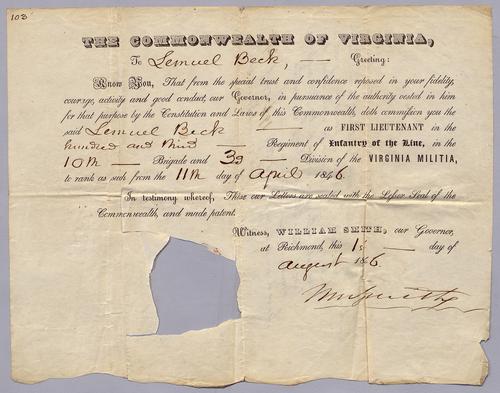 103
THE COMMONWEALTH OF VIRGINIA,
To Lemuel Beck, — Greeting:
Know You, That from the special trust and confidence reposed in your fidelity,
courage, activity and good conduct, our Governor, in pursuance of the authority vested in him
for that purpose by the Constitution and Laws of this Commonwealth, doth commission you the
said Lemuel Beck — as FIRST LIEUTENANT in the
hundred and third — Regiment of Infantry of the Line, in the
10th — Brigade and 3d — Division of the VIRGINIA MILITIA,
to rank as such from the 11th day of April 1846.
In testimony whereof, These our Letters are sealed with the Lesser Seal of the
Commonwealth, and made patent.
Witness, WILLIAM SMITH, our Governor,
at Richmond, this — day of
August 1846.
Wm Smith